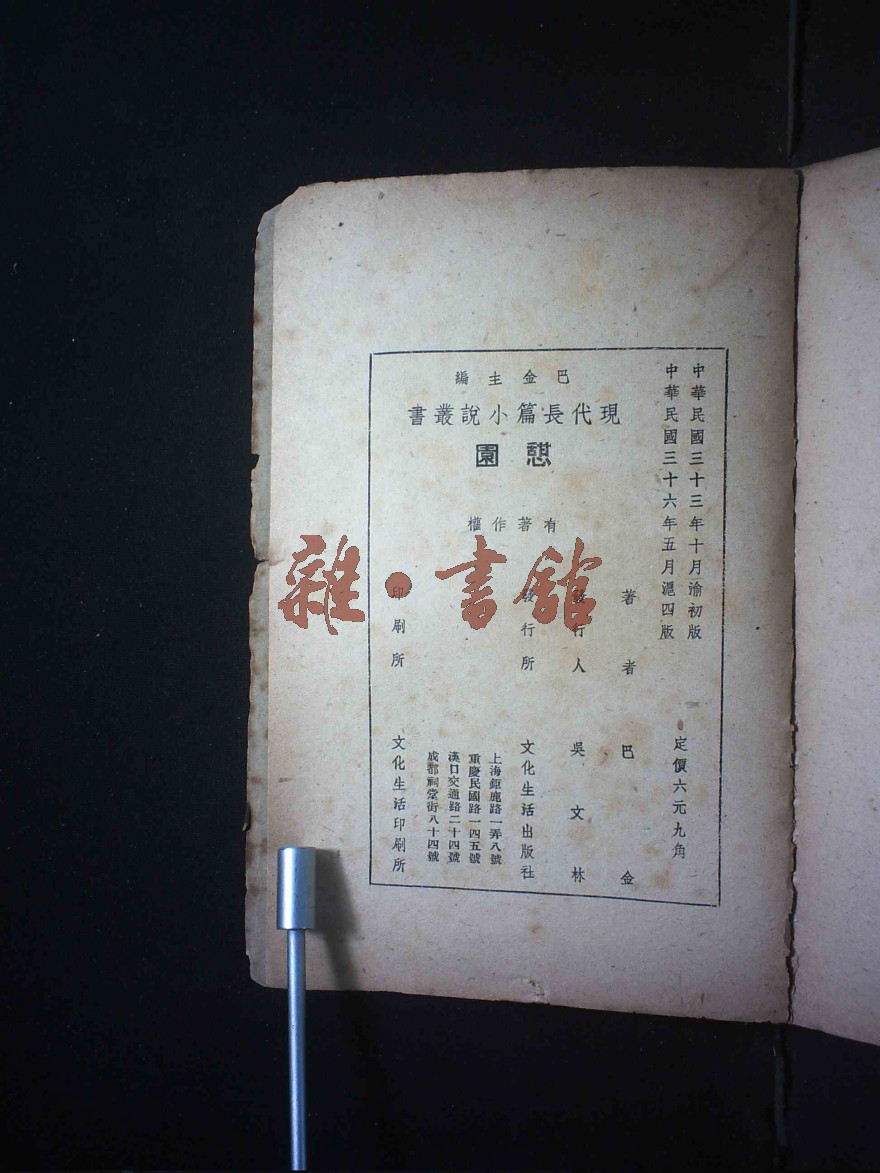 中華民國三十三年十月渝初版
中華民國三十六年五月滬四版
定價六元九角
巴金主編
現代長篇小說叢書
憇園
有著作權
著者 巴金
發行人 吳文林
發行所 文化生活出版社
上海鉅鹿路一弄八號
重慶民國路一四五號
漢口交通路二十四號
成都祠堂街八十四號
印刷所 文化生活印刷所
雜·書館